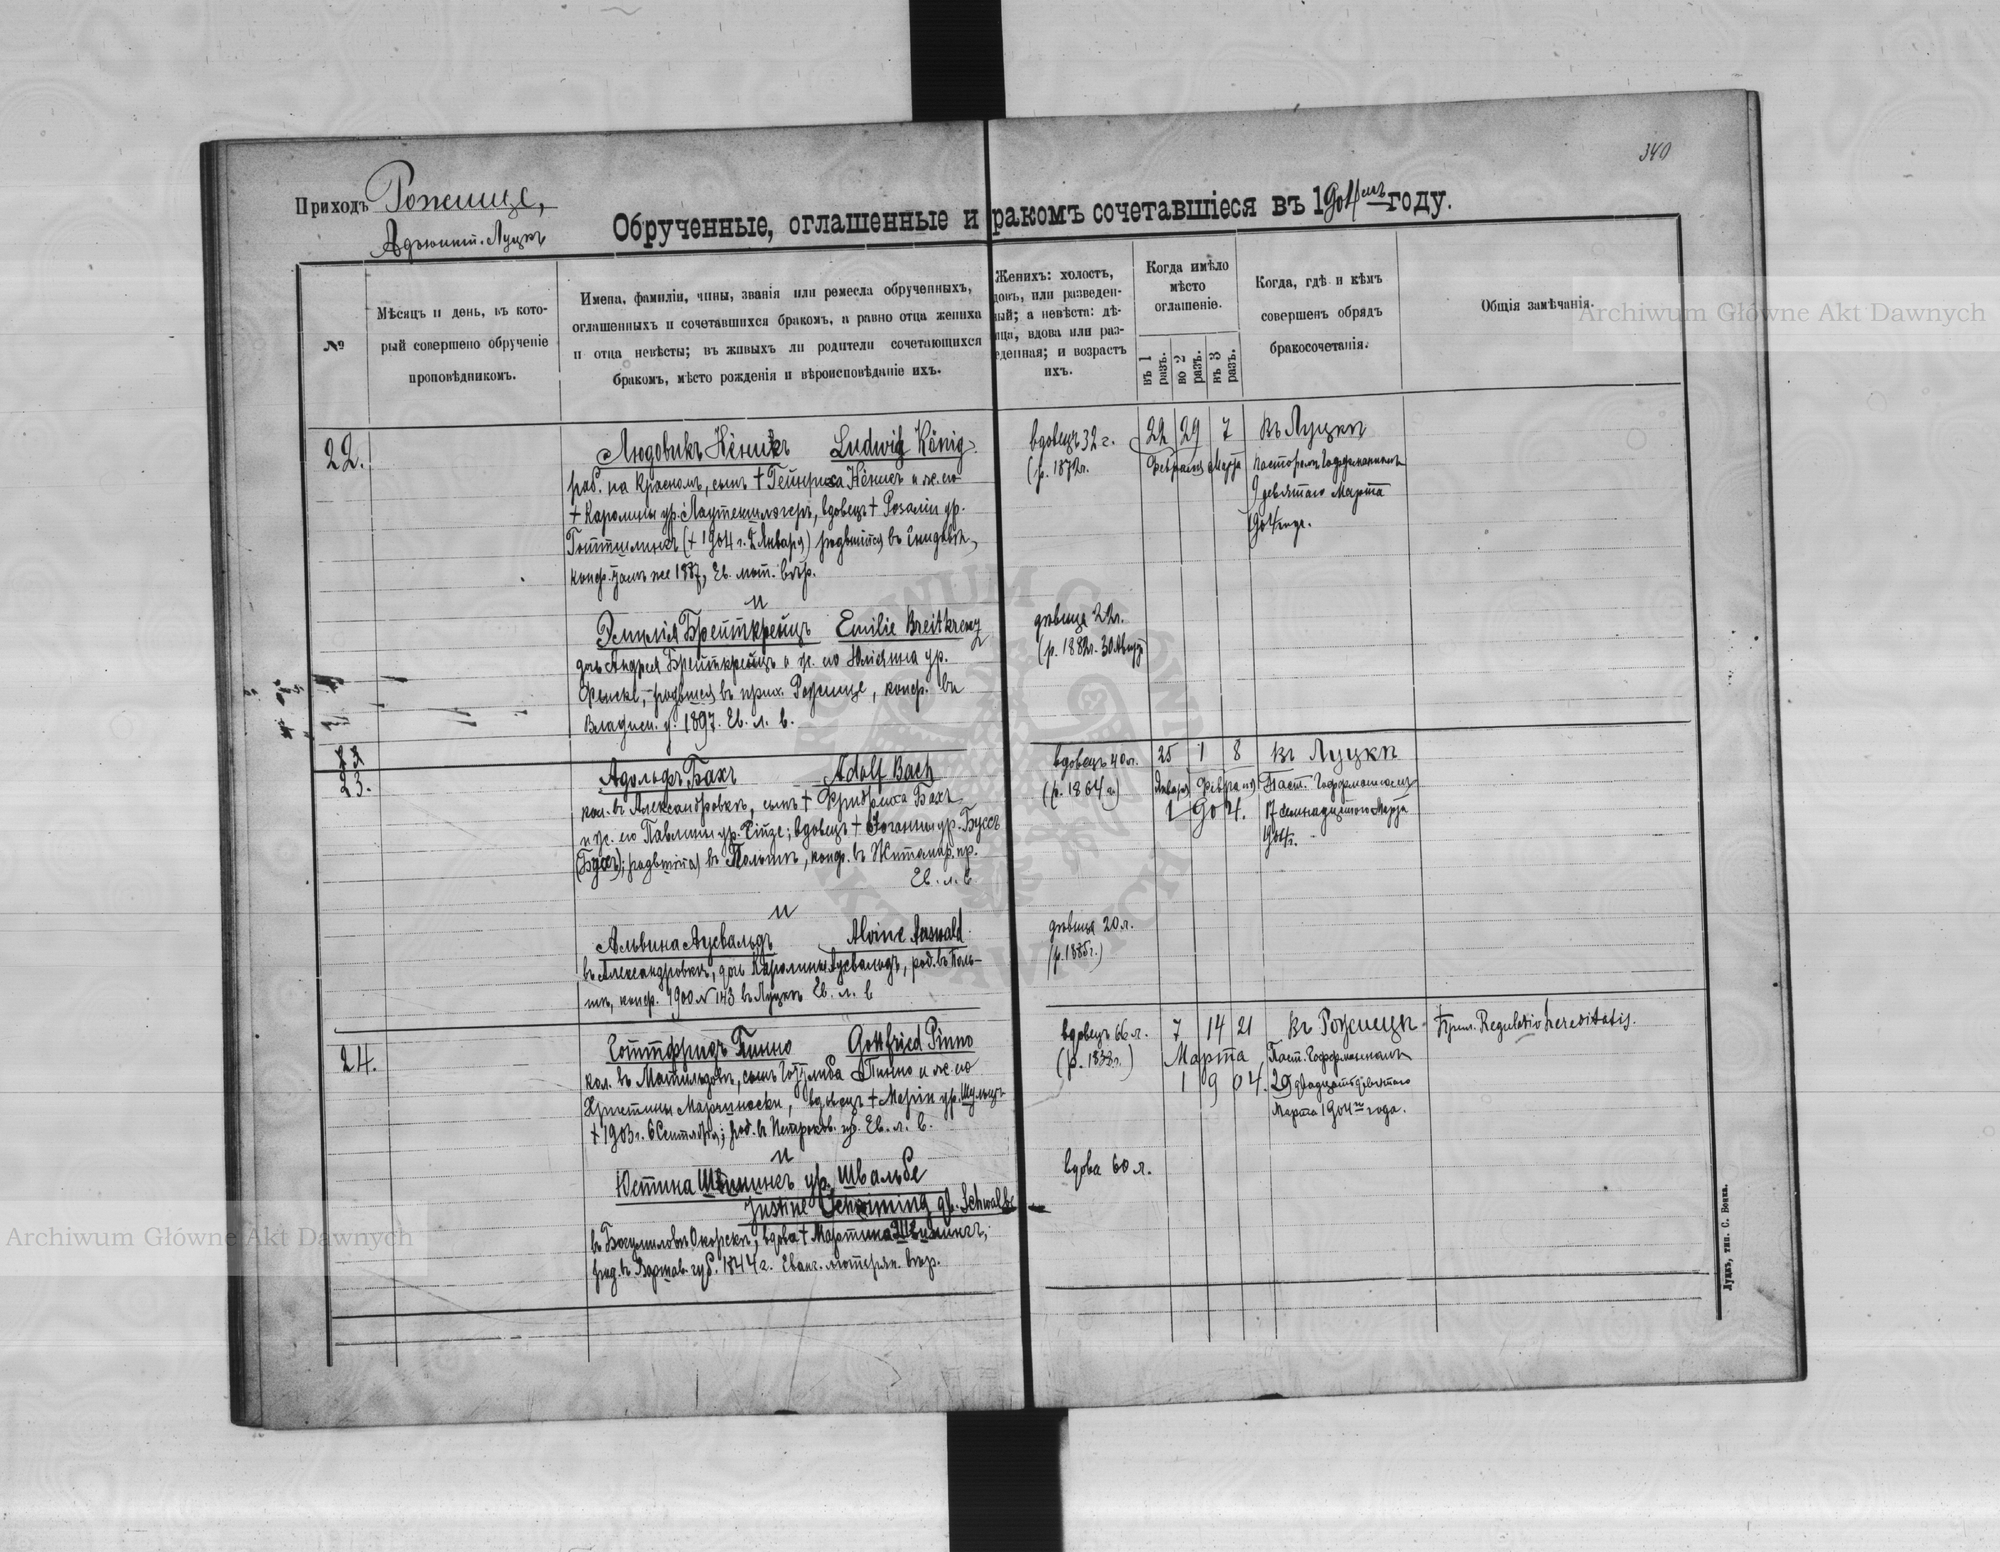 340
Приходъ Рожище,
Адъюнкт. Луцкъ
Обрученные, оглашенные и ракомъ сочетавшіеся въ 1904мъ году.
№
Мѣсяцъ и день, въ кото-
рый совершено обрученіе
проповѣдникомъ.
Имена, фамиліи, чины, званія или ремесла обрученныхъ,
оглашенныхъ и сочетавшихся бракомъ, а равно отца жениха
и отца невѣсты; въ живыхъ ли родители сочетающихся
бракомъ, мѣсто рожденія и вѣроисповѣданіе ихъ.
Женихъ: холостъ,
довъ, или разведен-
ный; а невѣста: дѣ-
ица, вдова или раз-
еденная; и возрастъ
ихъ.
Когда имѣло
мѣсто
оглашеніе.
въ 1 разъ.
во 2 разъ.
въ 3 разъ.
Когда, гдѣ и кѣмъ
совершенъ обрядъ
бракосочетанія.
Общія замѣчанія.
22.
Людовикъ Кёникъ Ludwig König
раб. на Красномъ, сынъ † Гейнриха Кёникъ и ж. его
† Каролины ур. Лаутеншлегеръ, вдовецъ † Розаліи ур.
(† 1904 г. 2 Января) родившійся въ
конф. тамъ же 1887, Ев. лют. вѣр.
и
Эмилія Брейткрейцъ Emilie Breitkreuz
дочь Андрея Брейткрейцъ и ж. его Юліянна ур.
Фенске, родшся въ прих. Рожище, конф. въ
Владим. у. 1897. Ев. л. в.
вдовецъ 32 г.
(р. 1872г.
22 29 7
Февраля Марта
въ Луцкѣ
пасторомъ Гофманномъ
9 девятаго Марта
1904 года.
дѣвица 22г.
(р. 1882г. 30 Мар
23
23.
Адольфъ Бахъ Adolf Bach
кол. въ Александровкѣ, сынъ † Фридриха Бахъ
и ж. его Павлины ур. вдовецъ † Іоганны ур. Буссъ
родвшійся въ Польшѣ, конф. въ Житомир. пр.
Ев. л. в
и
Альвина Аусвальдъ Alvine Auswald
въ Александровкѣ, дочь Каролины Аусвальдъ, род. въ Поль-
шѣ, конф. 1900 № 143 въ Луцкѣ Ев. л. в
вдовецъ 40 л.
(р. 1864 г.)
25 1 8
Января Февраля
1904.
въ Луцкѣ
Паст. Гоффманномъ
17 семнадцатого Марта
1904г.
дѣвица 20 л.
(р. 1885г.)
24.
Готтфридъ Пинно Gottfried Pinno
кол. въ Матильдовѣ, сынъ Готтлиба Пинно и ж. его
Христины вдовецъ † Маріи ур. Шульцъ
† 1903 г. 6 Сентября; род. въ Петроков. губ. Ев. л. в.
и
Юстина ур. Швальбе
Justine geb. Schwalbe
въ вдова † Мартина
род. въ Варшав. губ. 1844 г. Еванг. лютеран. вѣр.
вдовецъ 66 л.
(р. 1838г.)
7 14 21
Марта
1904.
въ Рожищѣ
Паст. Гоффманномъ
29 двадцать девятого
Марта 1904 года.
Regulatio hereditatis.
вдова 60 л.
Луцкъ, тип. С. Бонка.
Archiwum Główne Akt Dawnych
Archiwum Główne Akt Dawnych